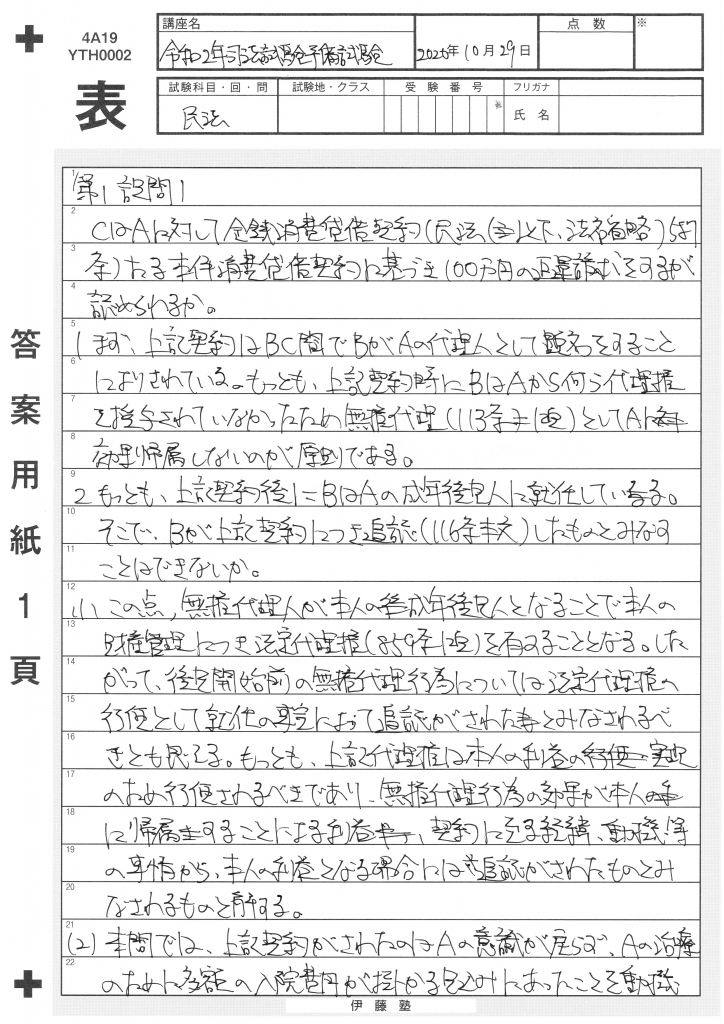 4A19
YTH0002
表
講座名
令和2年司法試験予備試験
2020年10月29日
点数
※
試験科目・回・問
民法
試験地・クラス
受験番号
フリガナ
氏名
答案用紙1頁
1 第1 設問1
2 CはAに対して金銭消費貸借契約(民法(以下、法名省略)587
3 条)たる本件消費貸借契約に基づき100万円の返還請求をするが
4 認められるか。
5 1 まず、上記契約はBC間でBがAの代理人として顕名をすること
6 によりされている。もっとも、上記契約時にBはAから何ら代理権
7 を授与されていなかったため無権代理(113条1項)としてAに
8 効果帰属しないのが原則である。
9 2 もっとも、上記契約後にBはAの成年後見人に就任している。
10 そこで、Bが上記契約につき追認(116条本文)したものとみなす
11 ことはできないか。
12 (1) この点、無権代理人が本人の成年後見人となることで本人の
13 財産管理につき法定代理権(859条1項)を有することとなる。した
14 がって、後見開始前の無権代理行為については法定代理権の
15 行使として就任の事実によって追認がされたとみなされるべ
16 きとも思える。もっとも、上記代理権は本人の利益の実現
17 のため行使されるべきであり、無権代理行為の効果が本人
18 に帰属することによる利益、契約に至る経緯、動機等
19 の事情から、本人の利益となる場合には追認がされたものとみ
20 なされるものと解する。
21 (2) 本問では、上記契約がされたのはAの意識が戻らず、Aの治療
22 のために多額の入院費用が掛かる見込みにあったことを動機
伊藤塾